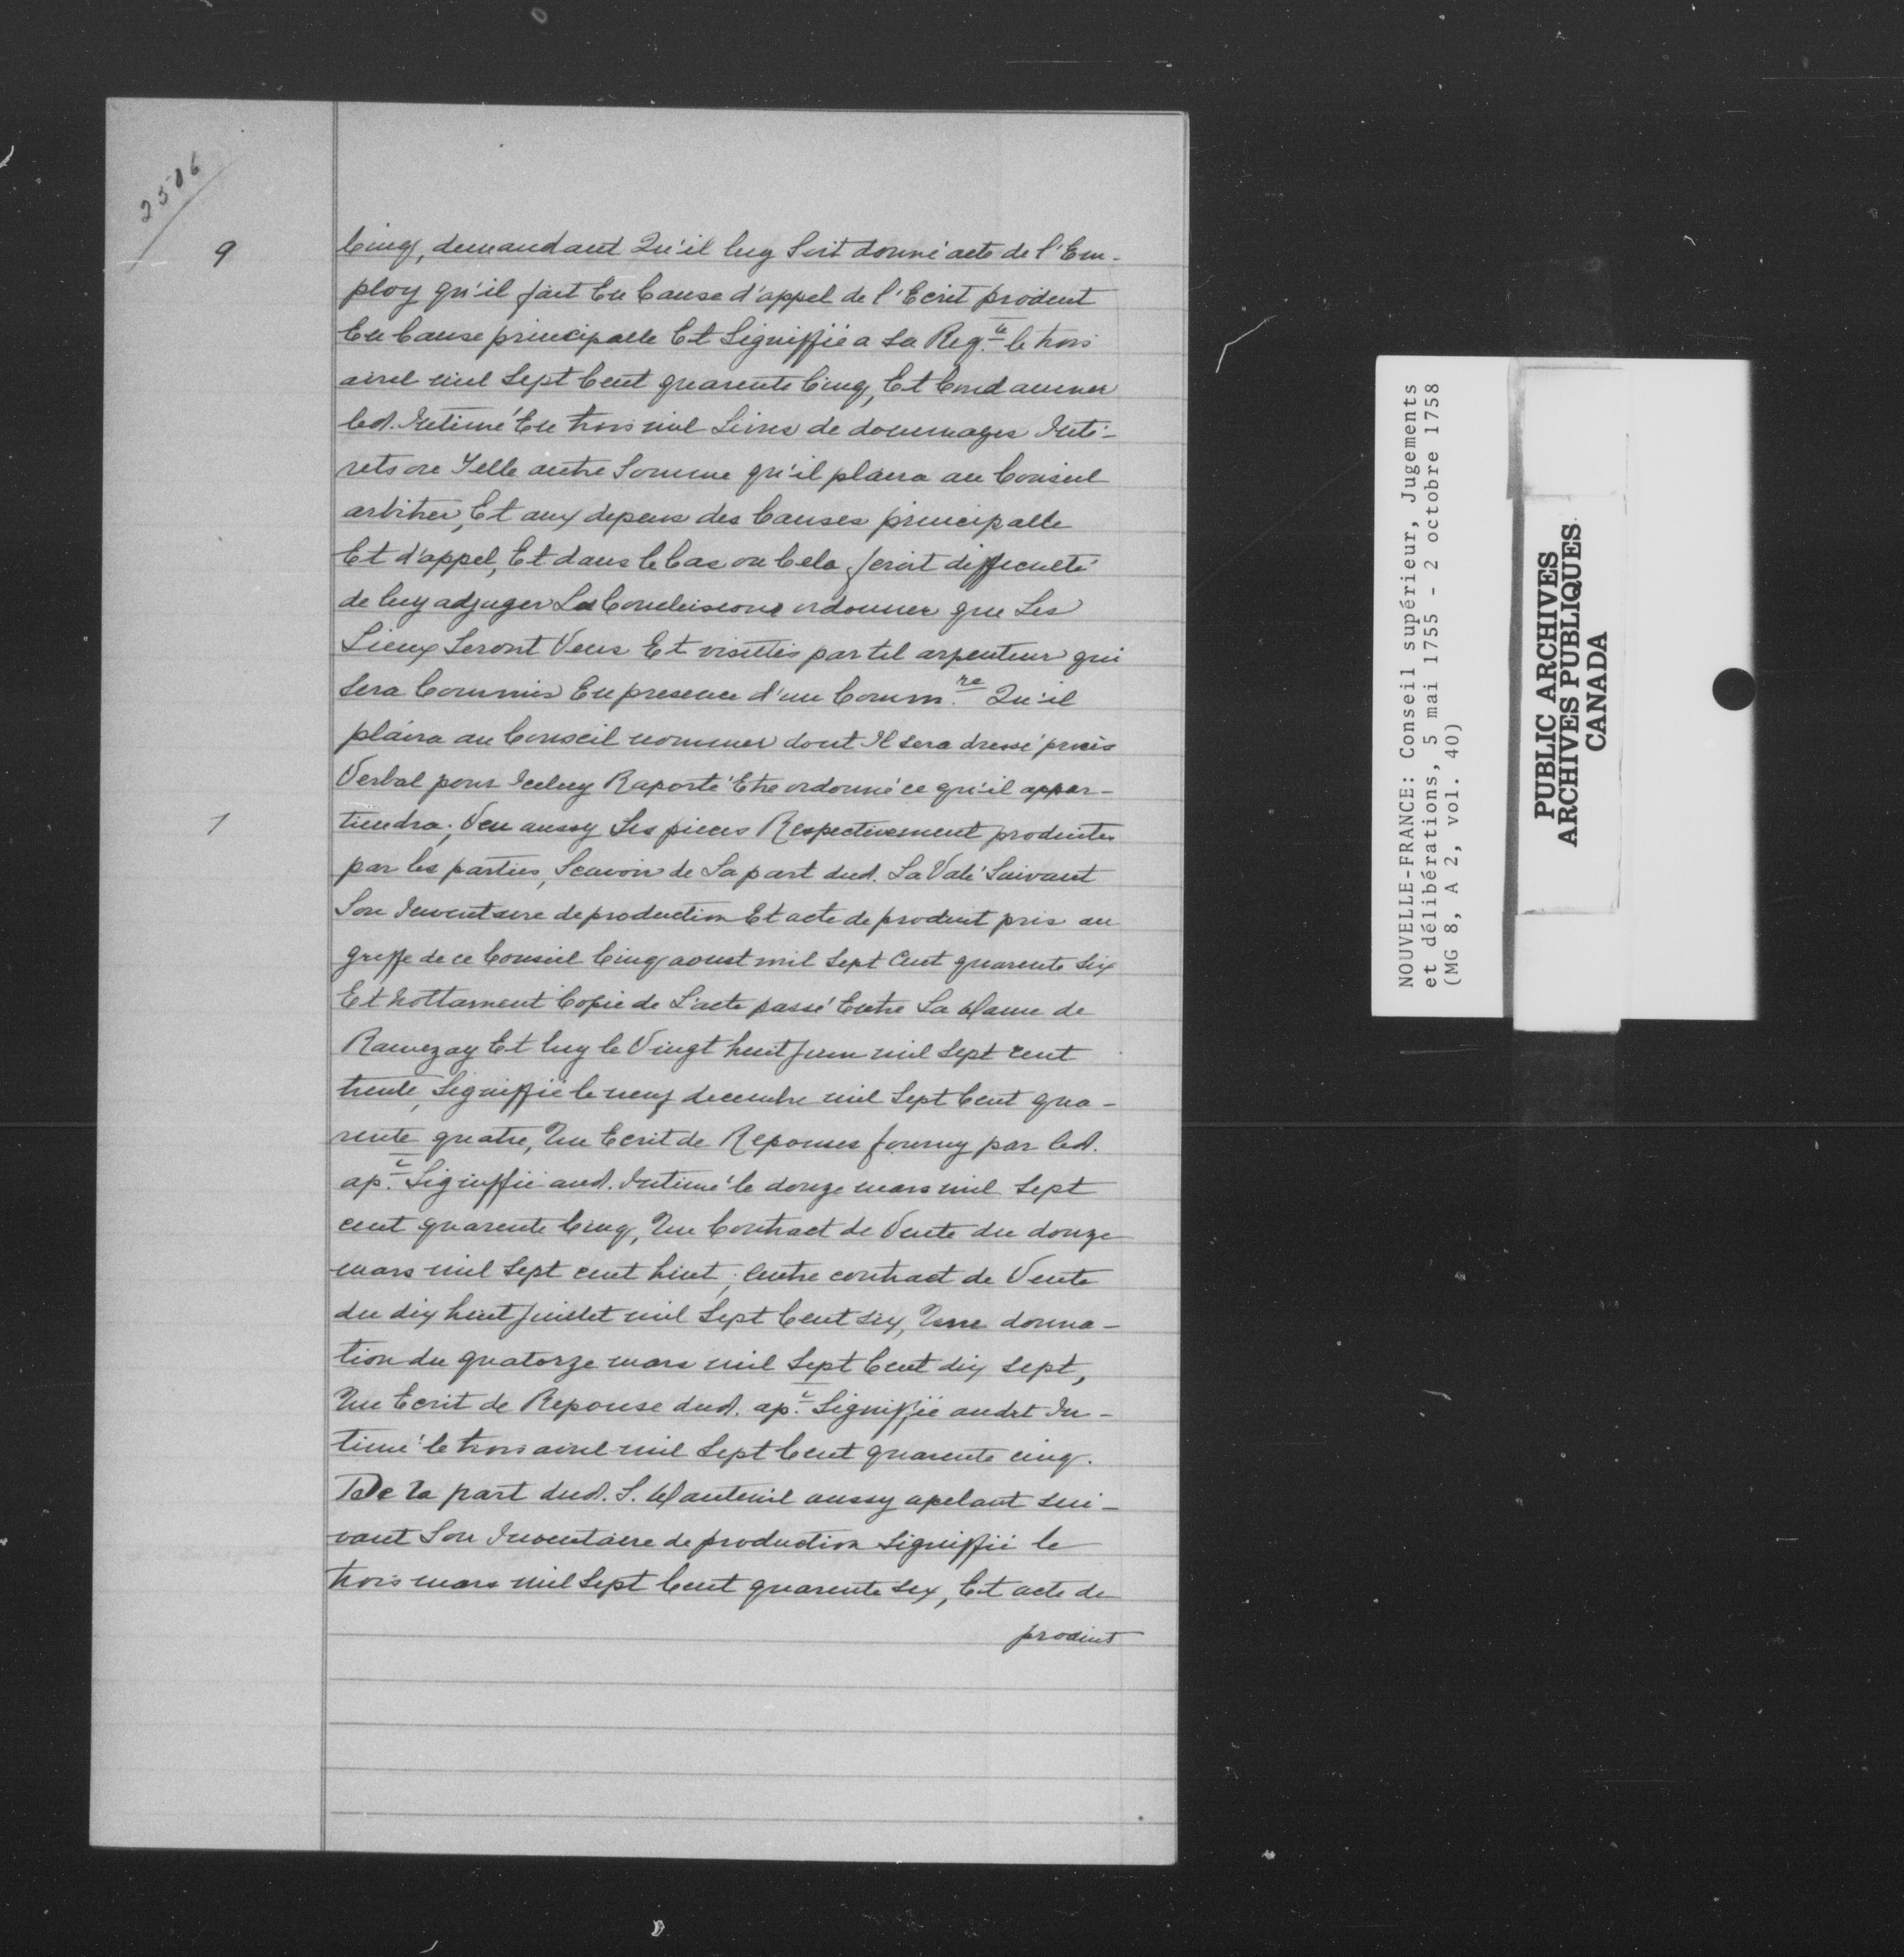 2506
9
Cinq, demandant Qu'il luy Soit donné acte de l'Em-
ploy qu'il fait En Cause d'appel de l'Ecrit produit
En Cause principalle Et Signiffié a Sa Req.te le trois
avril mil Sept Cent quarente Cinq, Et Condamner
led. Intimé En trois mil Livres de dommages Inté-
rets ou Telle autre Somme qu'il plaira au Conseil
arbitrer, Et aux depens des Causes principalle
Et d'appel, Et dans le Cas ou Cela feroit difficulté
de luy adjuger Ses Conclusions ordonner que Les
Lieux Seront Veus Et visittés par tel arpenteur qui
Sera Commis En presence d'un Comm.re Qu'il
plaira au Conseil nommer dont Il sera dressé procès
Verbal pour Iceluy Raporté Etre ordonné ce qu'il appar-
1
tiendra; Veu aussy Les pieces Respectivement produites
par les parties, Scavoir de La part dud. La Valé Suivant
Son Inventaire de production Et acte de produit pris au
greffe de ce Conseil Cinq aoust mil Sept Cent quarente Six
Et nottament Copie de L'acte passé Entre La dame de
Ramezay Et luy le Vingt huit Juin mil Sept cent
trente, Signiffié le neuf decembre mil Sept Cent qua-
rente quatre, Un Ecrit de Reponses fourny par led.
ap.t Signiffié aud. Intimé le douze mars mil Sept
cent quarente Cinq, Un Contract de Vente du douze
mars mil Sept cent huit; autre contract de Vente
du dix huit Juillet mil Sept Cent Six, Une donna-
tion du quatorze mars mil Sept Cent dix Sept,
Un Ecrit de Reponse dud. ap.t Signiffié audit In-
timé le trois avril mil Sept Cent quarente cinq.
De La part dud. S. Dauteuil aussy apelant sui-
vant Son Inventaire de production Signiffié le
trois mars mil Sept Cent quarente Six, Et acte de
produit
NOUVELLE-FRANCE: Conseil supérieur, Jugements
et délibérations, 5 mai 1755 - 2 octobre 1758
(MG 8, A 2, vol. 40)
PUBLIC ARCHIVES
ARCHIVES PUBLIQUES
CANADA